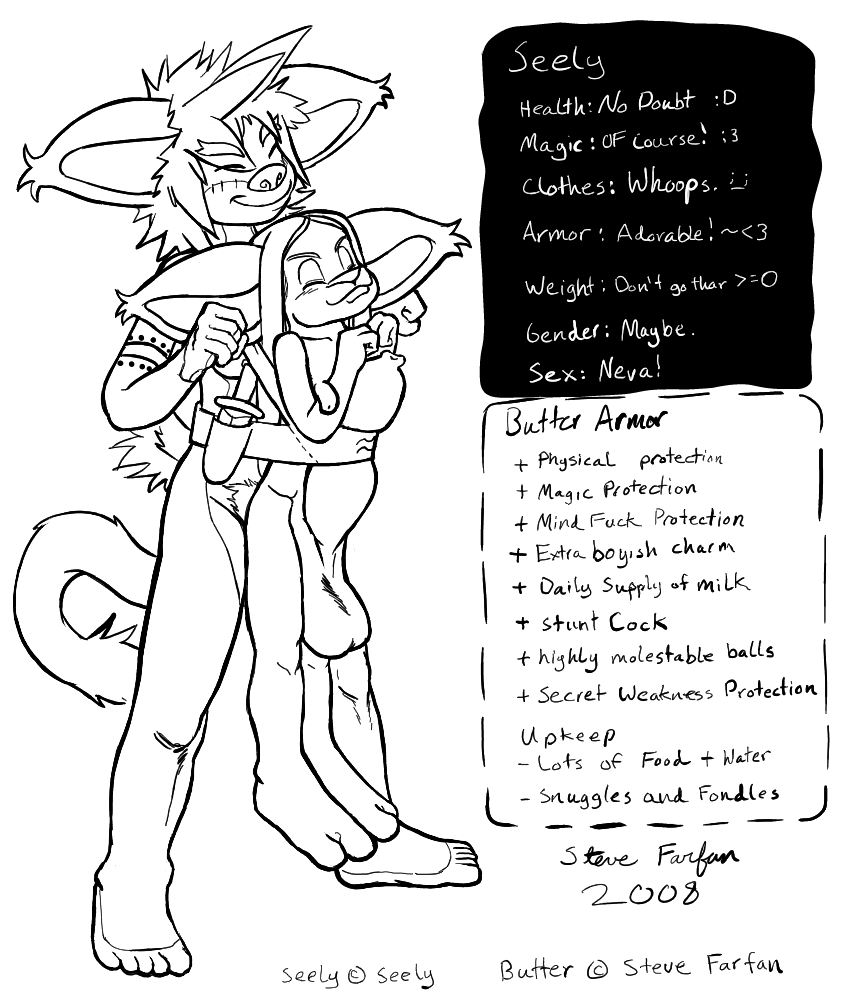 Seely
Health: No Doubt :D
Magic: OF Course! ;3
Clothes: Whoops. :j
Armor: Adorable! ~<3
Weight: Don't go thar >=O
Gender: Maybe.
Sex: Neva!
Butter Armor
+ Physical protection
+ Magic Protection
+ Mind Fuck Protection
+ Extra boyish charm
+ Daily Supply of milk
+ stunt Cock
+ highly molestable balls
+ Secret Weakness Protection
Upkeep
- Lots of Food + Water
- Snuggles and Fondles
Steve Farfan
2008
Seely © Seely
Butter © Steve Farfan